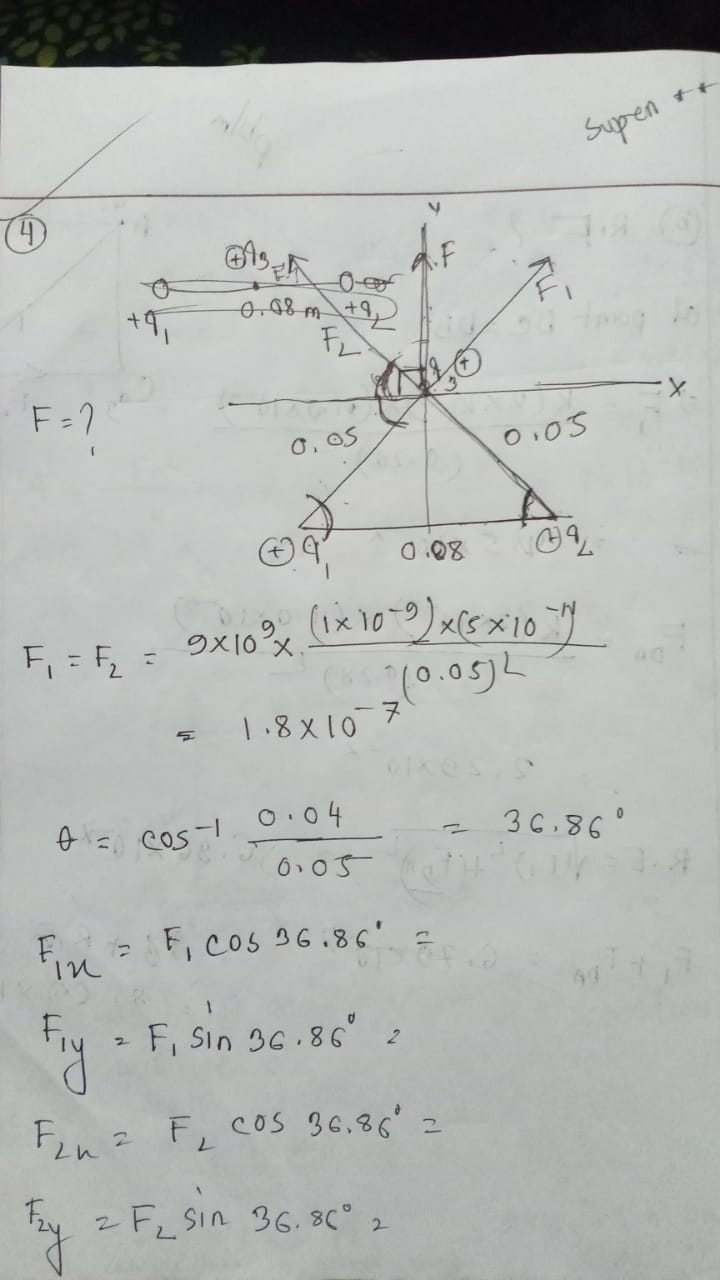 Super ++
④
Y
⊕q3
F
F1
0.08 m
+q1
+q2
F2
q3 ⊕
X
F = ?
0.05
0.05
⊕q1
0.08
⊕q2
F1 = F2 = 9×10^9 × (1×10^-9)×(5×10^-11) / (0.05)^2
= 1.8×10^-7
θ = cos^-1 0.04 / 0.05 = 36.86°
F1x = F1 cos 36.86° =
F1y = F1 sin 36.86° =
F2x = F2 cos 36.86° =
F2y = F2 sin 36.86° =